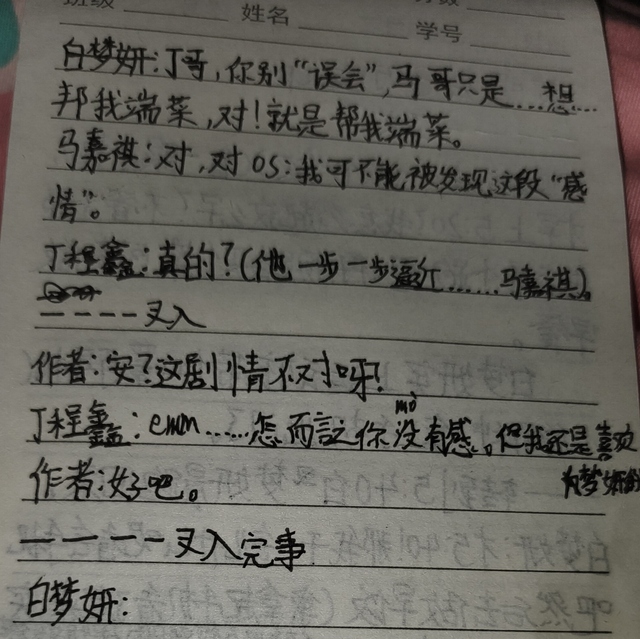 班级
姓名
学号
白梦妍:丁哥,你别“误会”,马哥只是……想…
邦我端菜,对!就是帮我端菜。
马嘉祺:对,对OS:我可不能被发现这段“感
情”。
丁程鑫:真的?(他一步一步逼近……马嘉祺)。
————叉入
作者:安?这剧情不对呀!
丁程鑫:emm……怎而言之你没有感。但我还是喜欢
mò
白梦妍的
作者:好吧。
————叉入完事
白梦妍: